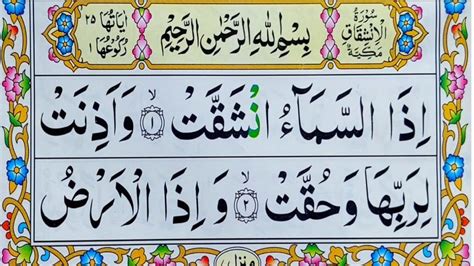 سُورَةُ الْاِنْشِقَاقِ مَكِّيَّةٌ
بِسْمِ اللّٰهِ الرَّحْمٰنِ الرَّحِيْمِ
اٰيَاتُهَا ٢٥
رُكُوْعُهَا ١
اِذَا السَّمَآءُ انْشَقَّتْ ۙ‏ ١ وَاَذِنَتْ
لِرَبِّهَا وَحُقَّتْ ۙ‏ ٢ وَ اِذَا الْاَرْضُ
منزل